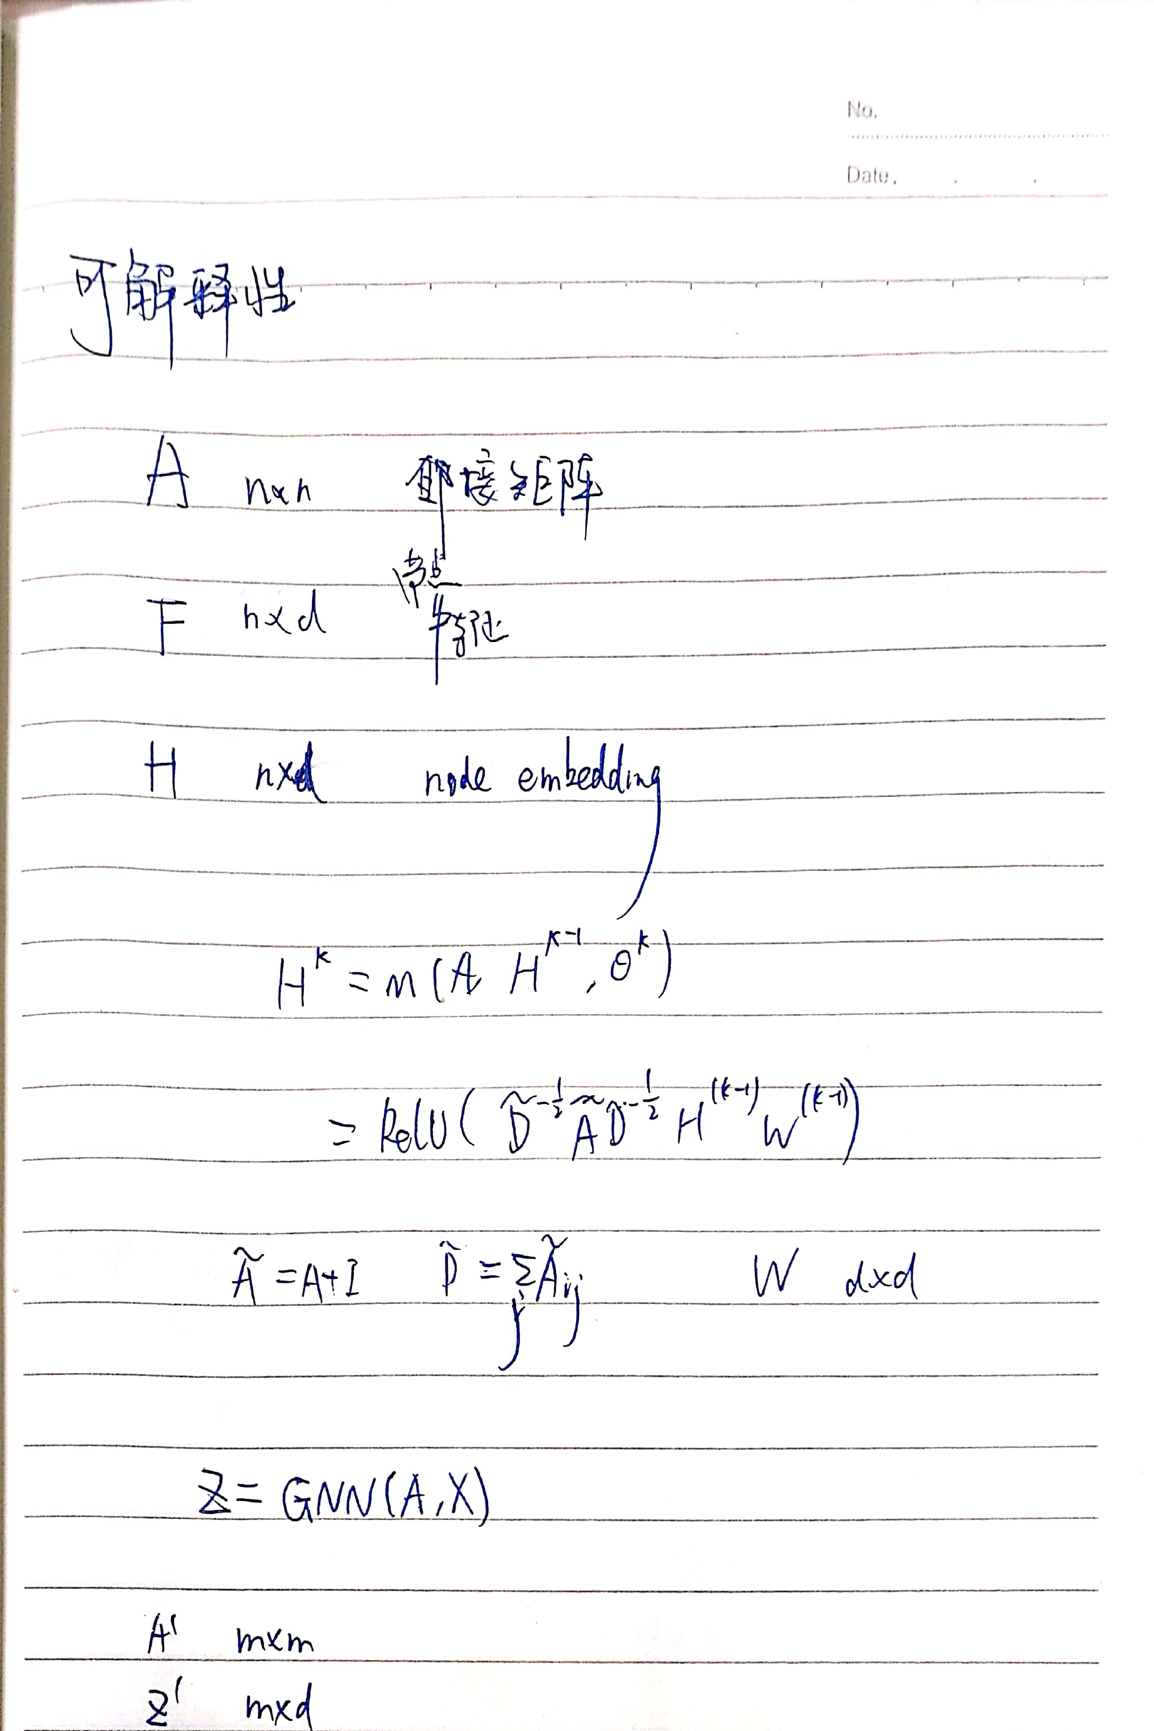 No.
Date.
可解释性
A n×n 邻接矩阵
节点
F n×d 特征
H n×d node embedding
H^k = m(A H^{k-1}, θ^k)
= ReLU( D̃^{-1/2} Ã D̃^{-1/2} H^{(k-1)} W^{(k-1)})
Ã = A+I D̃ = Σ_j Ã_{ij} W d×d
Z = GNN(A,X)
A' m×m
Z' m×d